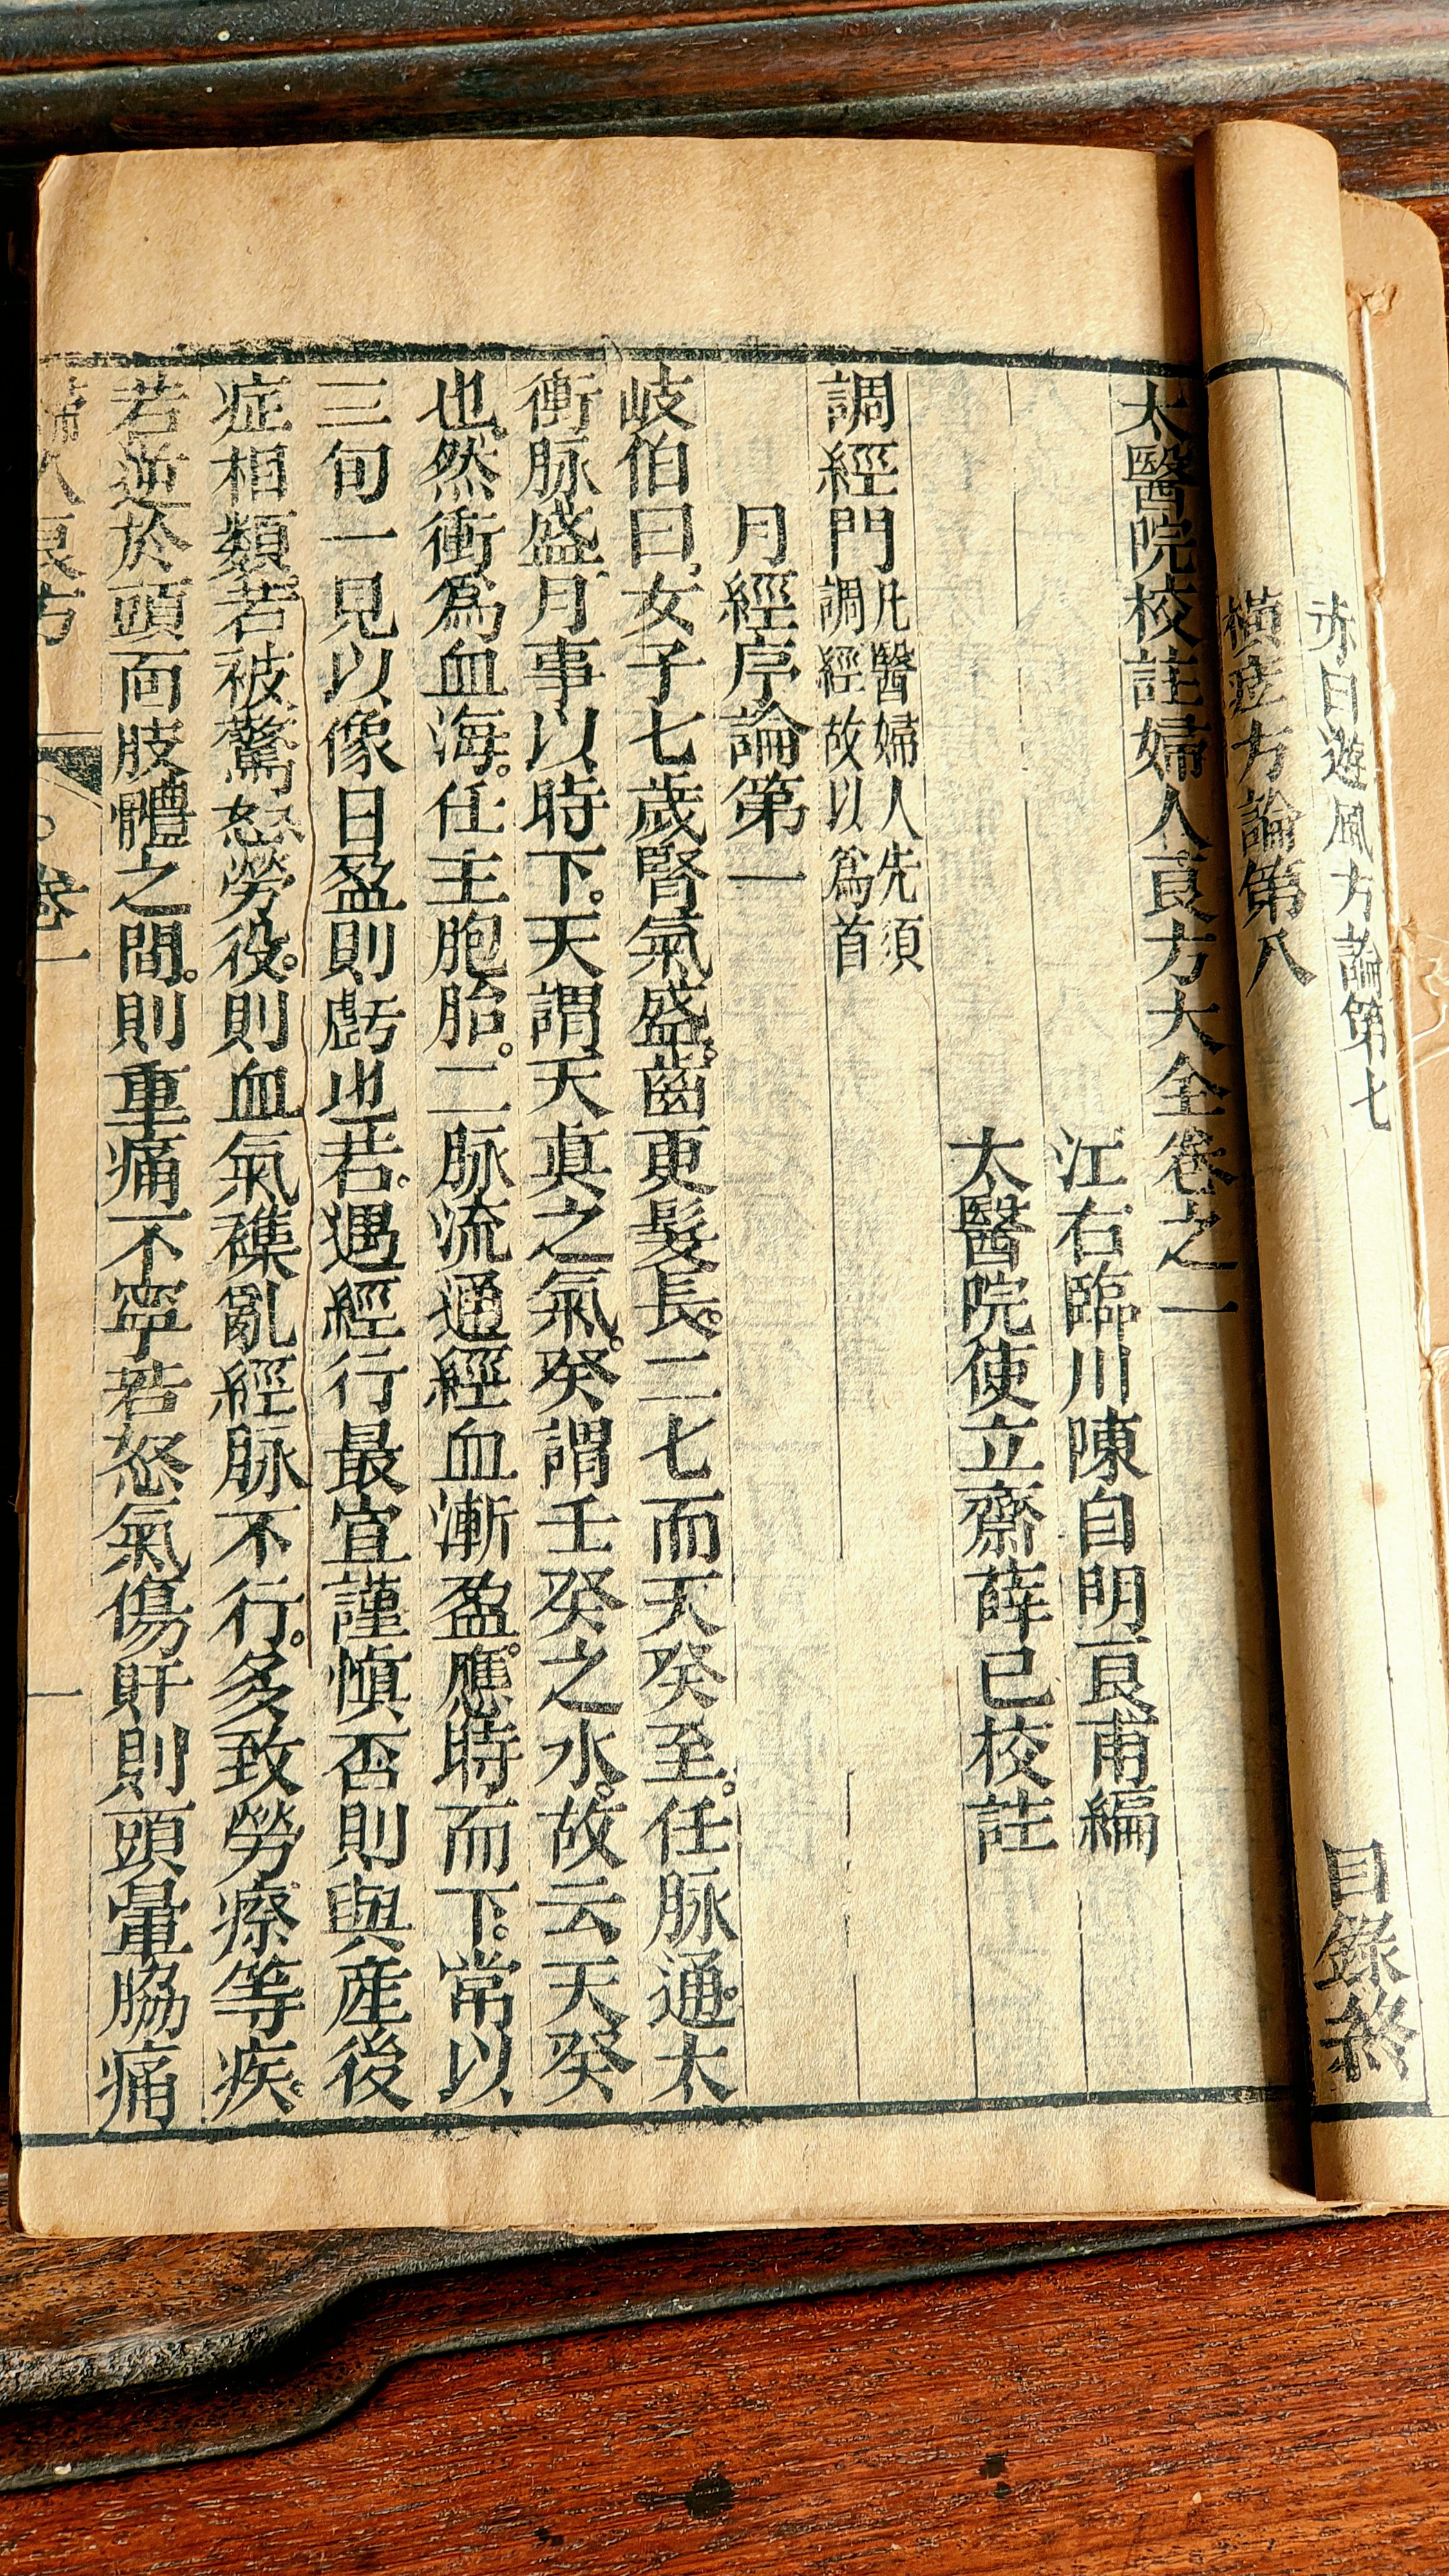 赤目遊風方論第七
橫痃方論第八
目錄終
太醫院校註婦人良方大全卷之一
江右臨川陳自明良甫編
太醫院使立齋薛己校註
調經門
凡醫婦人先須
調經故以爲首
月經序論第一
岐伯曰女子七歲腎氣盛。齒更髮長。二七而天癸至。任脉通。太
衝脉盛月事以時下。天謂天真之氣。癸謂壬癸之水。故云天癸
也。然衝爲血海。任主胞胎。二脉流通經血漸盈。應時而下。常以
三旬一見以像日盈則虧也。若遇經行最宜謹慎否則與產後
症相類。若被驚怒勞役。則血氣襍亂經脉不行。多致勞瘵等疾。
若逆於頭面肢體之間。則重痛不寧若怒氣傷肝則頭暈脇痛
婦人良方
卷一
一